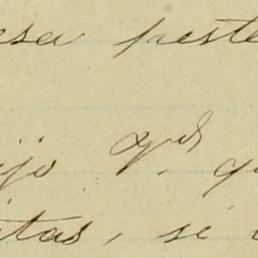 esa peste
ijo Vd. q
itas, si